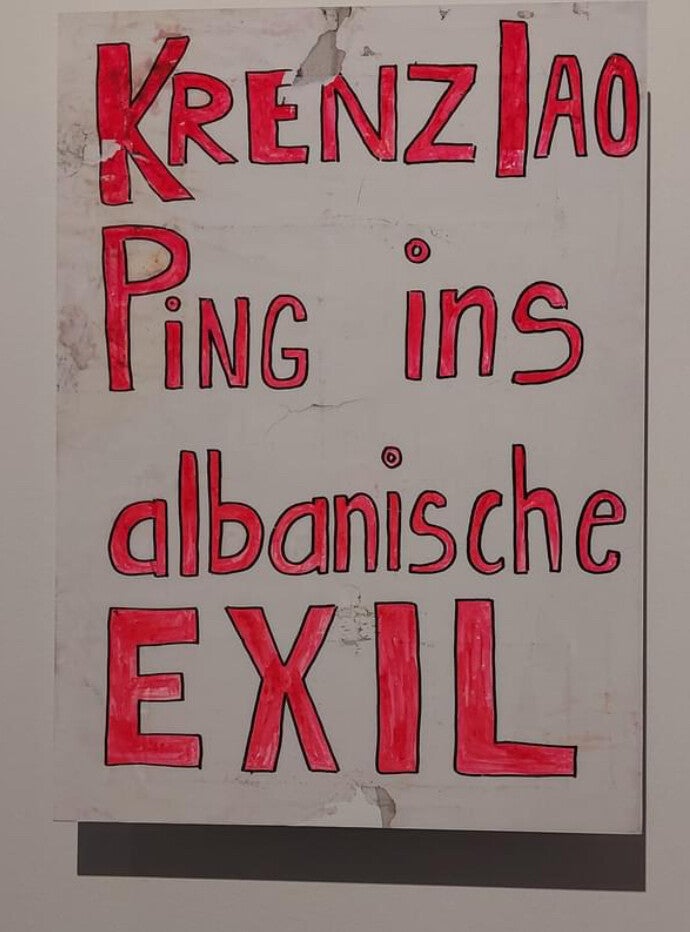 KRENZ IAO
PiNG ins
albanische
EXIL